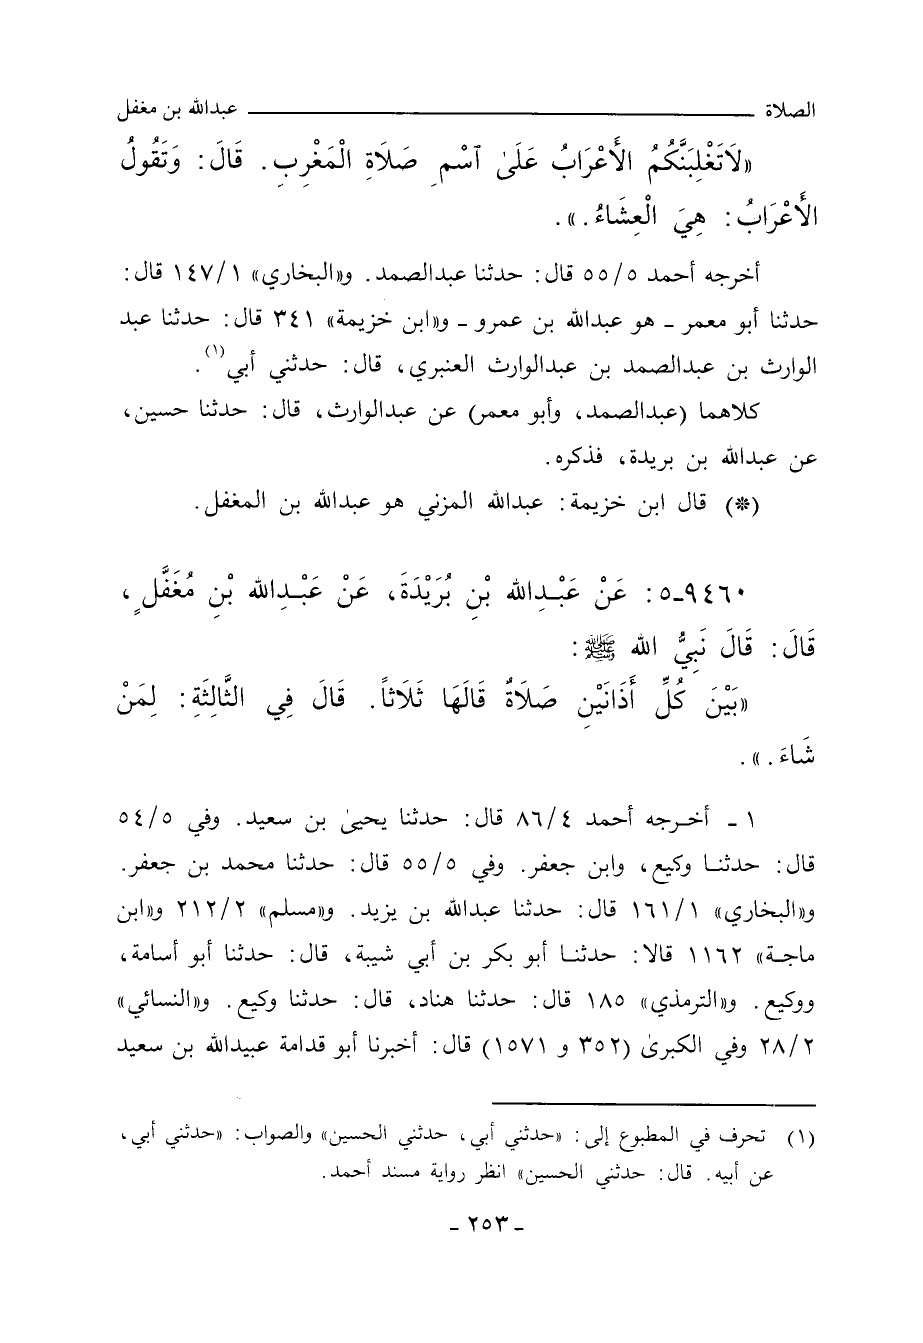 الصلاة ــــــــــ عبدالله بن مغفل
«لَاتَغْلِبَنَّكُمُ الأَعْرَابُ عَلَىٰ ٱسْمِ صَلَاةِ الْمَغْرِبِ. قَالَ: وَتَقُولُ
الأَعْرَابُ: هِيَ الْعِشَاءُ.».
أخرجه أحمد ٥/٥٥ قال: حدثنا عبدالصمد. و«البخاري» ١/١٤٧ قال:
حدثنا أبو معمر - هو عبدالله بن عمرو - و«ابن خزيمة» ٣٤١ قال: حدثنا عبد
الوارث بن عبدالصمد بن عبدالوارث العنبري، قال: حدثني أبي(١).
كلاهما (عبدالصمد، وأبو معمر) عن عبدالوارث، قال: حدثنا حسين،
عن عبدالله بن بريدة، فذكره.
(*) قال ابن خزيمة: عبدالله المزني هو عبدالله بن المغفل.
٩٤٦٠-٥: عَنْ عَبْدِالله بْنِ بُرَيْدَةَ، عَنْ عَبْدِالله بْنِ مُغَفَّلٍ،
قَالَ: قَالَ نَبِيُّ الله ﷺ:
«بَيْنَ كُلِّ أَذَانَيْنِ صَلَاةٌ قَالَهَا ثَلَاثاً. قَالَ فِي الثَّالِثَةِ: لِمَنْ
شَاءَ.».
١ - أخرجه أحمد ٤/٨٦ قال: حدثنا يحيىٰ بن سعيد. وفي ٥/٥٤
قال: حدثنا وكيع، وابن جعفر. وفي ٥/٥٥ قال: حدثنا محمد بن جعفر.
و«البخاري» ١/١٦١ قال: حدثنا عبدالله بن يزيد. و«مسلم» ٢/٢١٢ و«ابن
ماجة» ١١٦٢ قالا: حدثنا أبو بكر بن أبي شيبة، قال: حدثنا أبو أسامة،
ووكيع. و«الترمذي» ١٨٥ قال: حدثنا هناد، قال: حدثنا وكيع. و«النسائي»
٢/٢٨ وفي الكبرىٰ (٣٥٢ و ١٥٧١) قال: أخبرنا أبو قدامة عبيدالله بن سعيد
(١) تحرف في المطبوع إلى: «حدثني أبي، حدثني الحسين» والصواب: «حدثني أبي،
عن أبيه. قال: حدثني الحسين» انظر رواية مسند أحمد.
- ٢٥٣ -